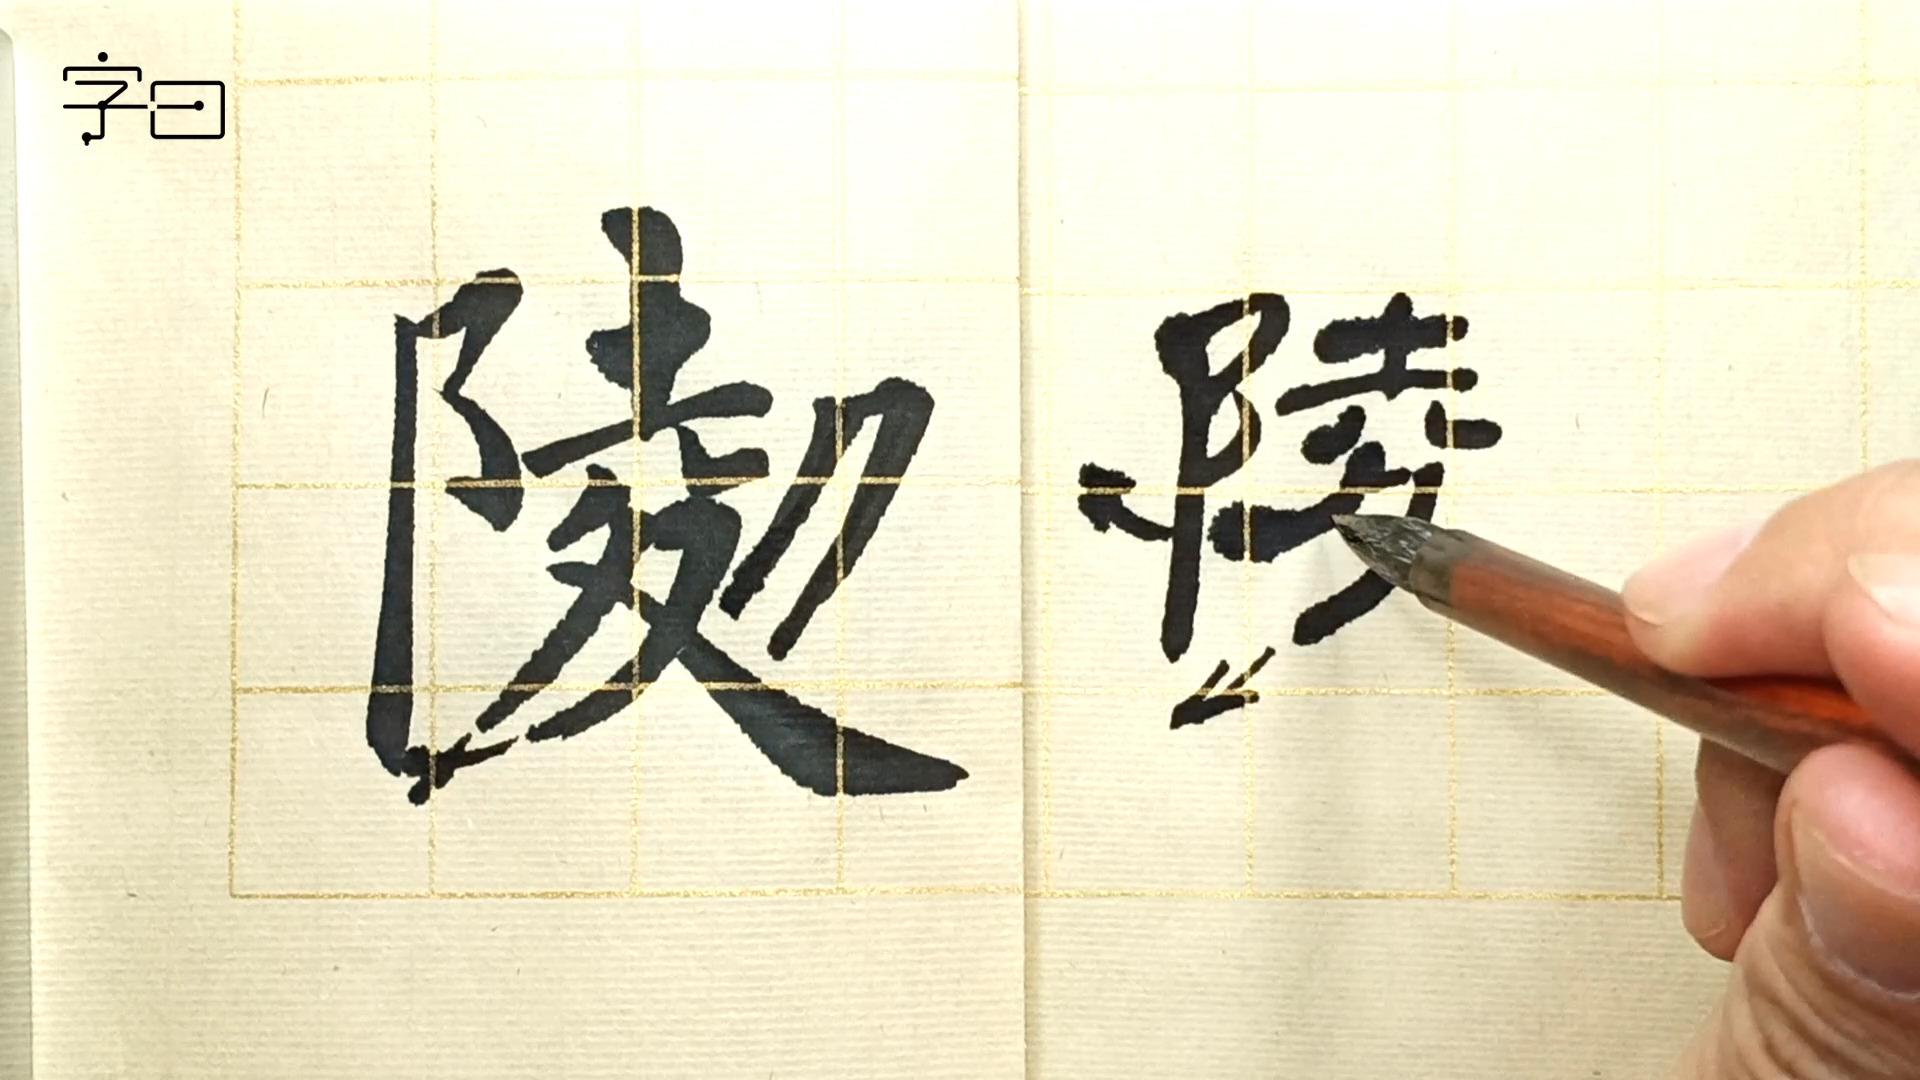 字曰
陵
陵